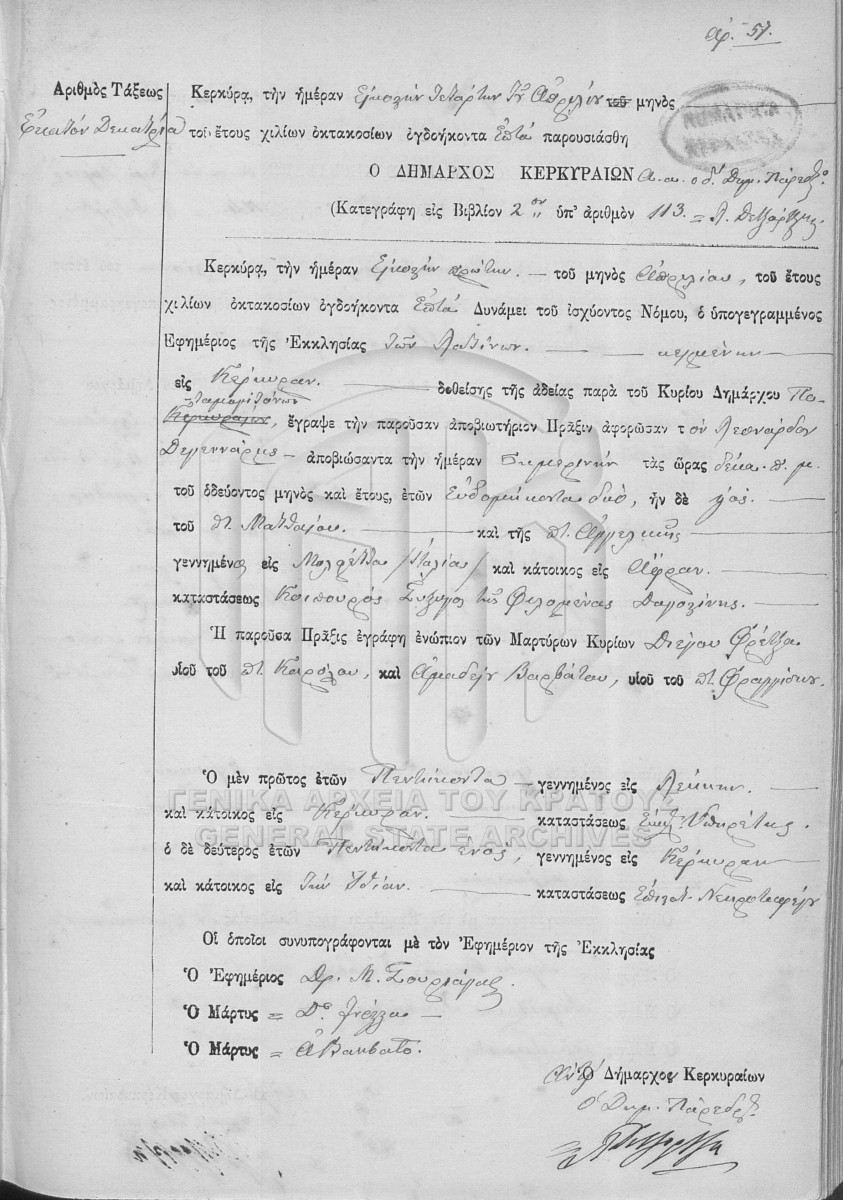 ἀρ. 57.
Ἀριθμὸς Τάξεως
Ἑκατόν Δεκατρία
Κερκύρᾳ, τὴν ἡμέραν Εἰκοστήν τετάρτην τοῦ Ἀπριλίου τοῦ μηνὸς
τοῦ ἔτους χιλίων ὀκτακοσίων ὀγδοήκοντα Ἑπτά παρουσιάσθη
Ο ΔΗΜΑΡΧΟΣ ΚΕΡΚΥΡΑΙΩΝ ὁ Δημ. Πάρεδρος
(Κατεγράφη εἰς Βιβλίον 2ον ὑπ' ἀριθμὸν 113 =
Κερκύρᾳ, τὴν ἡμέραν Εἰκοστήν πρώτην — τοῦ μηνὸς Ἀπριλίου, τοῦ ἔτους
χιλίων ὀκτακοσίων ὀγδοήκοντα Ἑπτά Δυνάμει τοῦ ἰσχύοντος Νόμου, ὁ ὑπογεγραμμένος
Ἐφημέριος τῆς Ἐκκλησίας τῶν Λατίνων. κειμένην
εἰς Κέρκυραν. δοθείσης τῆς ἀδείας παρὰ τοῦ Κυρίου Δημάρχου Πο-
ταμογιτόνων
Κερκυραίων, ἔγραψε τὴν παροῦσαν ἀποβιωτήριον Πρᾶξιν ἀφορῶσαν τὸν Λεονάρδον
Δεγεννάρης — ἀποβιώσαντα τὴν ἡμέραν Σημερινήν τὰς ὥρας δέκα π. μ.
τοῦ ὁδεύοντος μηνὸς καὶ ἔτους, ἐτῶν Ἑβδομήκοντα δύο, ἦν δὲ υἱός
τοῦ πτ Ματθαίου. καὶ τῆς πτ. Ἀγγελικῆς
γεννημένος εἰς Μολφέττα /Ἰταλίας/ καὶ κάτοικος εἰς Ἄφραν.
καταστάσεως Κηπουρός Σύζυγος τῆς Φιλομένας
Ἡ παροῦσα Πρᾶξις ἐγράφη ἐνώπιον τῶν Μαρτύρων Κυρίων Διέγου Φρέτζα
υἱοῦ τοῦ πτ Καρόλου, καὶ Ἀμαδέη Βαρβάτου, υἱοῦ τοῦ πτ Φραγγίσκου.
Ὁ μὲν πρῶτος ἐτῶν Πεντήκοντα — γεννημένος εἰς Λέκκην.
καὶ κάτοικος εἰς Κέρκυραν. καταστάσεως Ὑπηρέτης.
ὁ δὲ δεύτερος ἐτῶν Πεντήκοντα ἑνός, γεννημένος εἰς Κέρκυραν
καὶ κάτοικος εἰς τήν ἰδίαν. καταστάσεως Ἐπιστ. Νεκροταφείου
Οἱ ὁποῖοι συνυπογράφονται μὲ τὸν Ἐφημέριον τῆς Ἐκκλησίας
Ὁ Ἐφημέριος Δρ. Μ.
Ὁ Μάρτυς =
Ὁ Μάρτυς =
Ὁ Δήμαρχος Κερκυραίων
ὁ Δημ. Πάρεδρος
ΓΕΝΙΚΑ ΑΡΧΕΙΑ ΤΟΥ ΚΡΑΤΟΥΣ
GENERAL STATE ARCHIVES